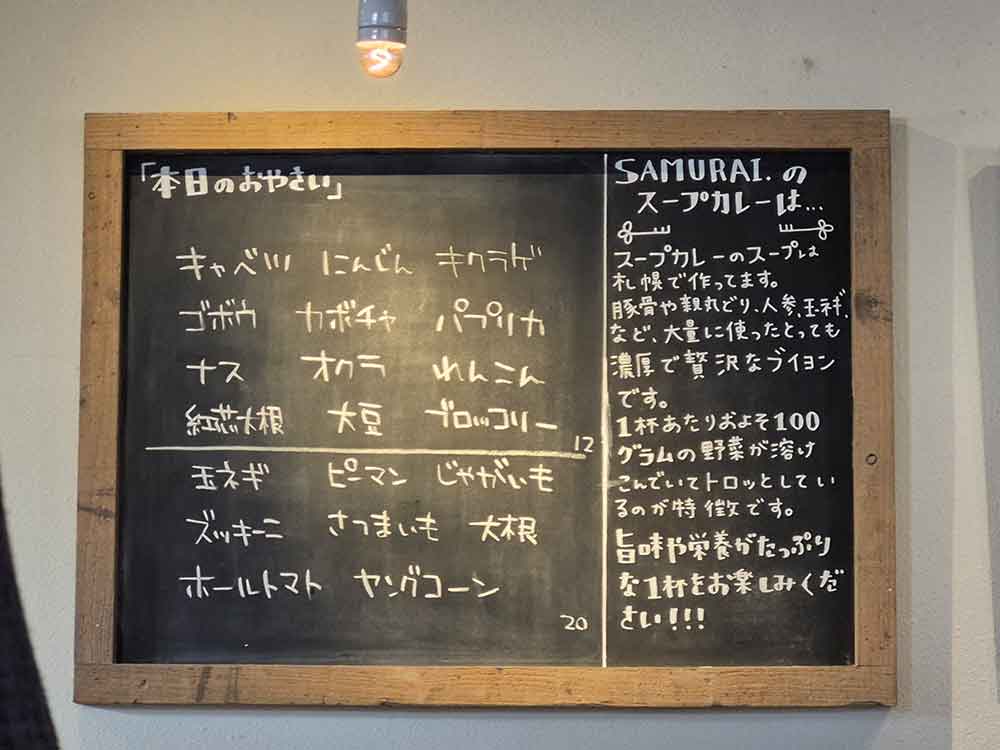 「本日のおやさい」
キャベツ にんじん キクラゲ
ゴボウ カボチャ パプリカ
ナス オクラ れんこん
紅芯大根 大豆 ブロッコリー
12
玉ネギ ピーマン じゃがいも
ズッキーニ さつまいも 大根
ホールトマト ヤングコーン
20
SAMURAI.の
スープカレーは...
スープカレーのスープは
札幌で作ってます。
豚骨や親丸どり、人参、玉ネギ、
など、大量に使ったとっても
濃厚で贅沢なブイヨン
です。
1杯あたりおよそ100
グラムの野菜が溶け
こんでいてトロッとしてい
るのが特徴です。
旨味や栄養がたっぷり
な1杯をお楽しみくだ
さい!!!